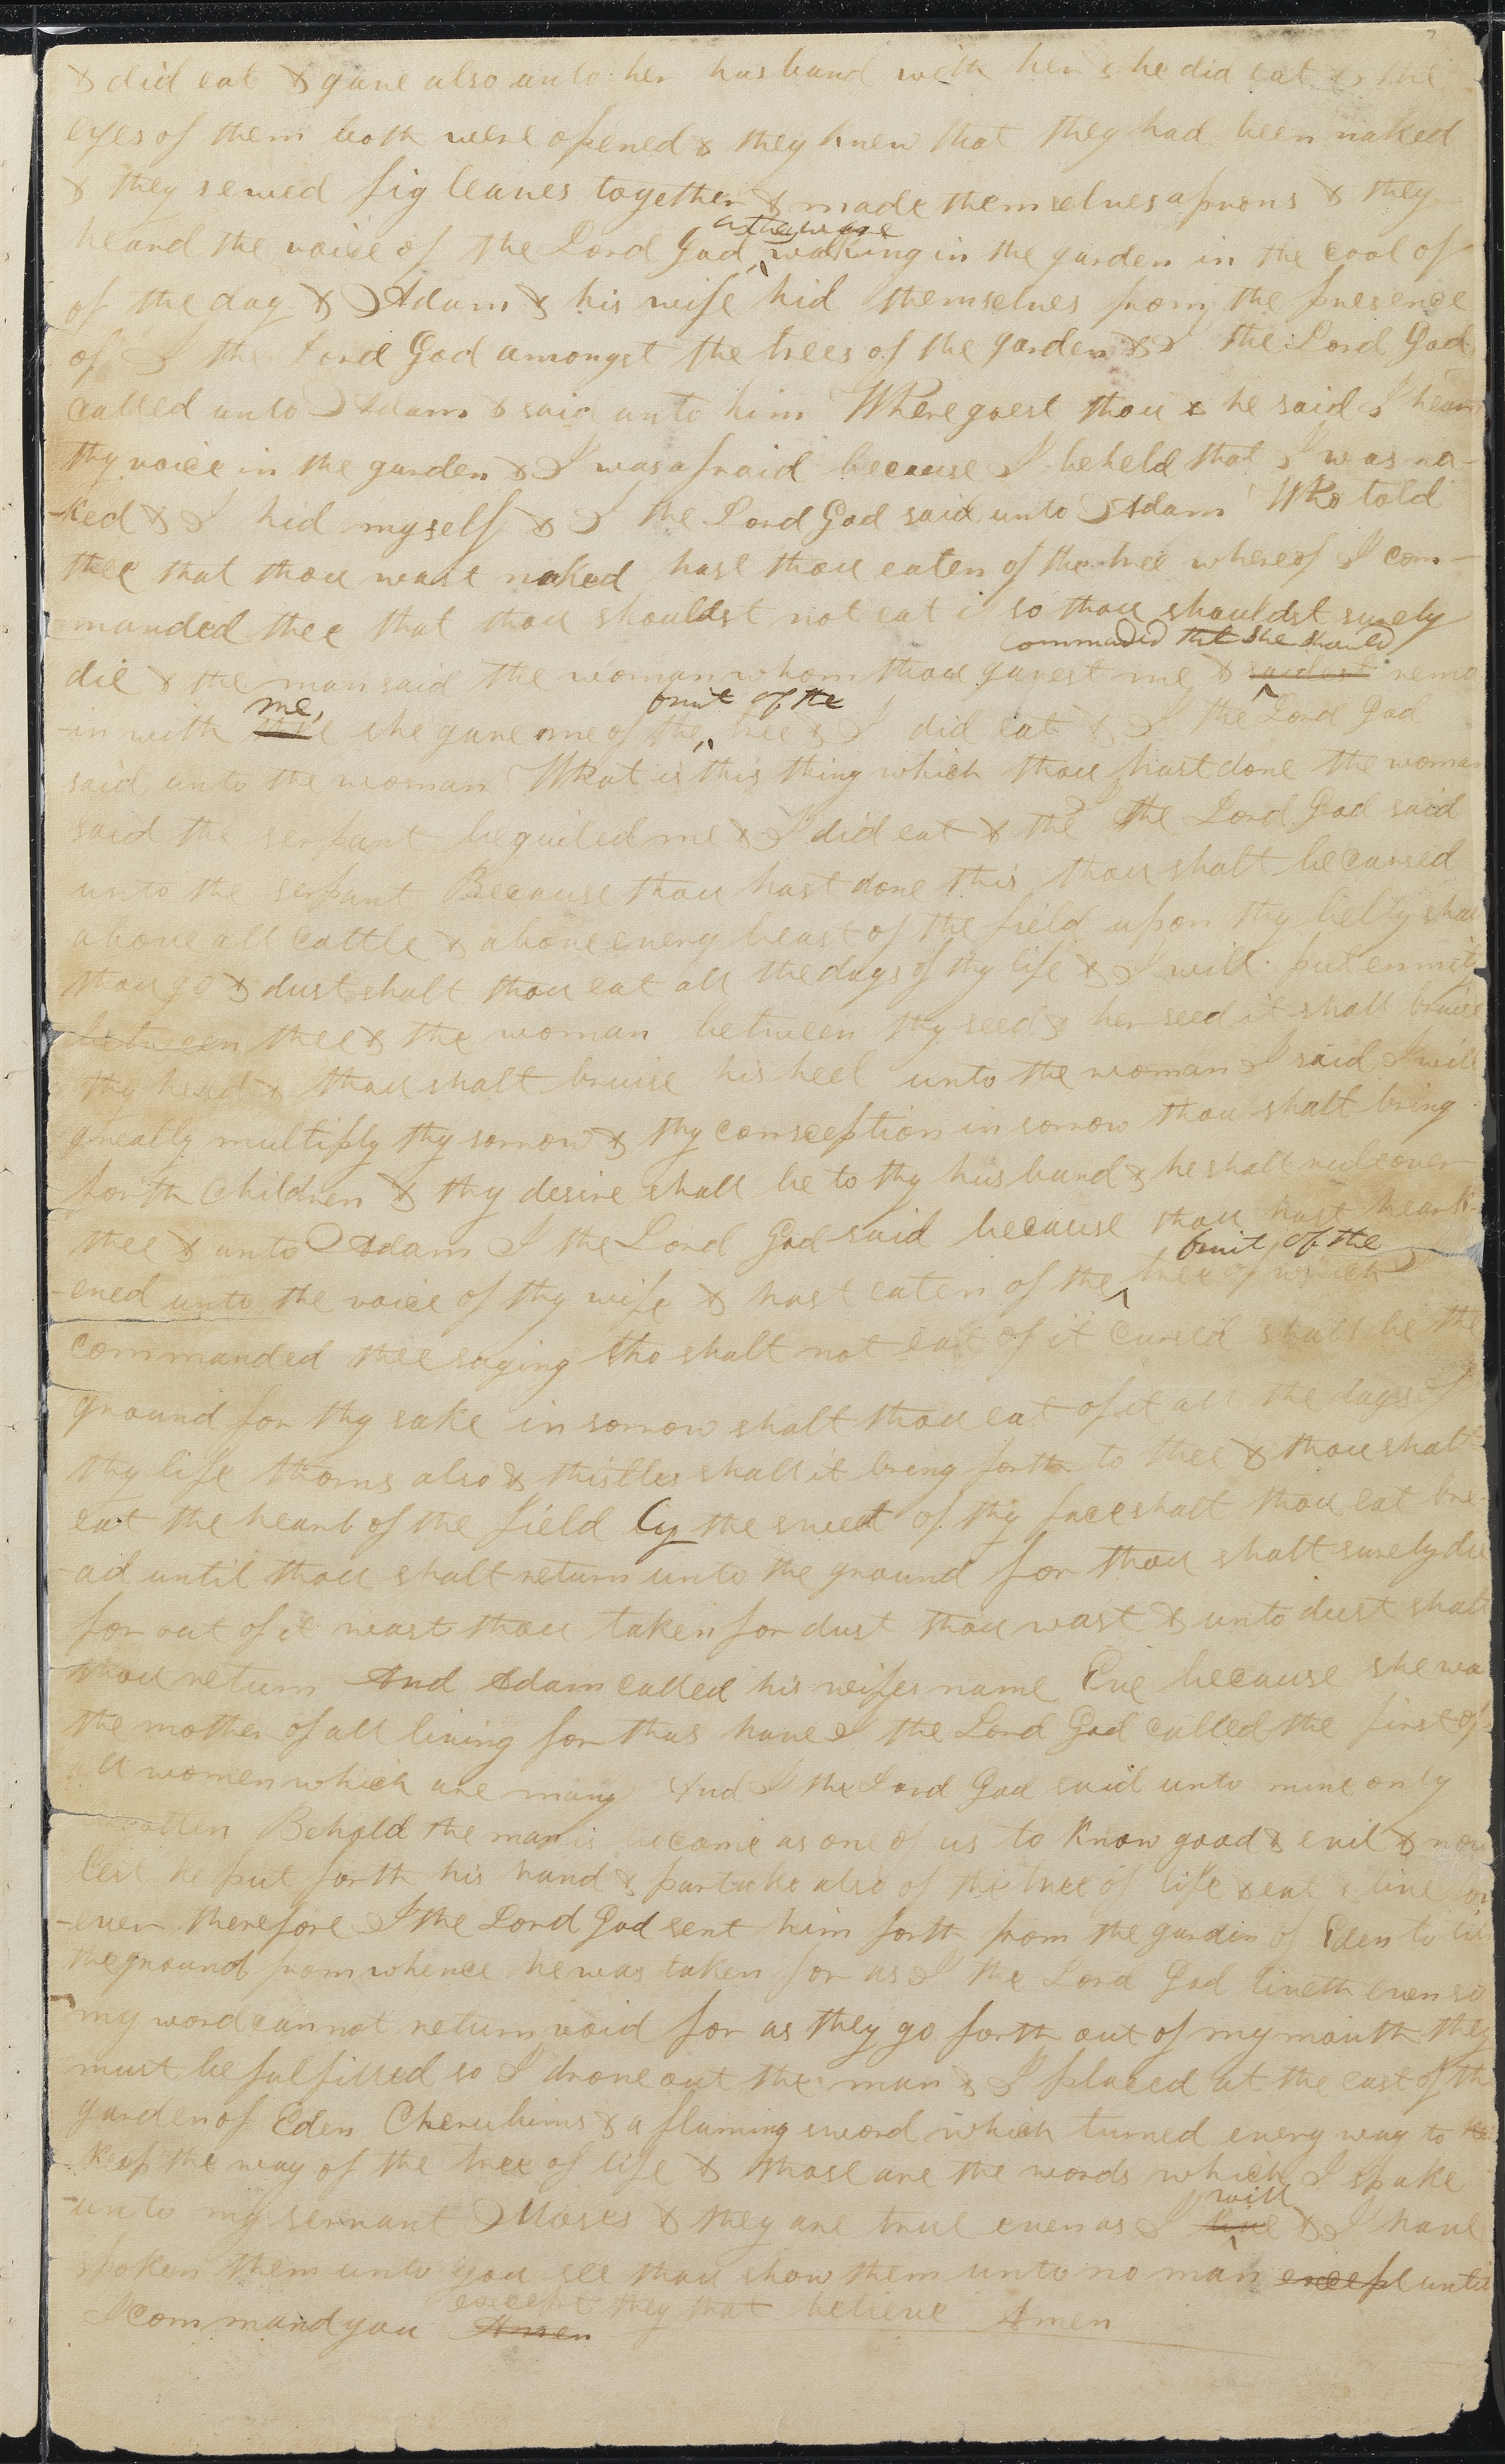 & did eat & gave also unto her husband with her & he did eat & the
eyes of them both were opened & they knew that they had been naked
& they sewed fig leaves together & made themselves aprons & they
as they ware
heard the voice of the Lord God walking in the garden in the cool of
of the day & Adam & his wife hid themselves from the presence
of I the Lord God amongst the trees of the garden & I the Lord God
called unto Adam & said unto him Where goest thou & he said I heard
thy voice in the garden & I was afraid because I beheld that I was na-
-ked & I hid myself & I the Lord God said unto Adam Who told
thee that thou wast naked hast thou eaten of the tree whereof I com-
manded thee that thou shouldst not eat if so thou shouldst surely
commanded that she should
die & the man said the woman whom thou gavest me & saidest rema
me, fruit of the
-in with thee she gave me of the tree & I did eat & I the Lord God
said unto the woman What is this thing which thou hast done the woman
said the serpant beguiled me & I did eat & the I the Lord God said
unto the serpant Because thou hast done this thou shalt be cursed
above all cattle & above every beast of the field upon thy belly shalt
thou go & dust shalt thou eat all the days of thy life & I will put enmity
between thee & the woman between thy seed & her seed it shall bruise
thy head & thou shalt bruise his heel unto the woman I said I will
greatly multiply thy sorrow & thy consception in sorrow thou shalt bring
forth Children & thy desire shall be to thy husband & he shall rule over
thee & unto Adam I the Lord God said because thou hast heark-
fruit of the
-ened unto the voice of thy wife & hast eaten of the tree of which I
commanded thee saying tho shalt not eat of it cursed shall be the
ground for thy sake in sorrow shalt thou eat of it all the days of
thy life thorns also & thistles shall it bring forth to thee & thou shalt
eat the hearb of the field by the sweat of thy face shalt thou eat bre-
-ad until thou shalt return unto the ground for thou shalt surely die
for out of it wast thou taken for dust thou wast & unto dust shalt
thou return And Adam called his wifes name Eve because she was
the mother of all living for thus have I the Lord God called the first of
all women which are many And I the Lord God said unto mine only
begotten Behold the man is become as one of us to know good & evil & now
lest he put forth his hand & partake also of the tree of life & eat & live for
-ever therefore I the Lord God sent him forth from the garden of Eden to till
the ground from whence he was taken for as I the Lord God liveth even so
my word cannot return void for as they go forth out of my mouth they
must be fulfilled so I drove out the man & I placed at the east of the
garden of Eden Cherubims & a flaming sword which turned every way to ke
keep the way of the tree of life & those are the words which I spake
will
unto my servant Moses & they are true even as I live & I have
spoken them unto you see thou show them unto no man except until
except they that believe Amen
I command you Amen